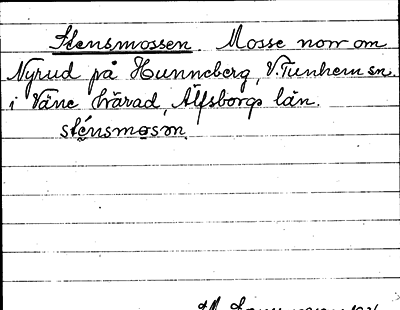 Stensmossen. Mosse norr om
Nyrud på Hunneberg, V. Tunhem sn.
i Väne härad, Älfsborgs län.
sténsmosən.